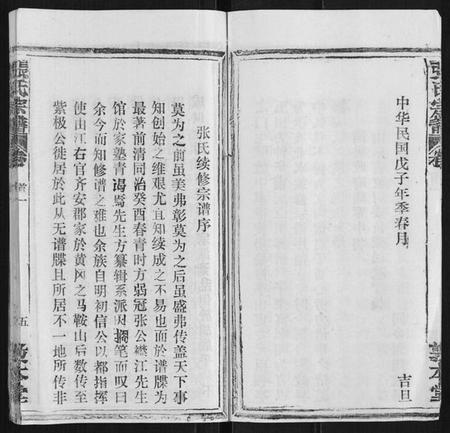 中华民国戊子年季春月
吉旦
张氏宗谱
卷
敦本堂
张氏续修宗谱序
莫为之前虽美弗彰莫为之后虽盛弗传盖天下事
知创始之维艰尤宜知续成之不易也而于谱牒为
最著前清同治癸酉春青时方弱冠张公襟江先生
馆於家塾青谒焉先生方纂辑系派因搁笔而叹曰
余今而知修谱之难也余族自明初信公以都指挥
使由江右官齐安郡家於黄冈之马鞍山后数传至
紫极公徙居於此从无谱牒且所居不一地所传非
張氏宗譜
卷
首一
五